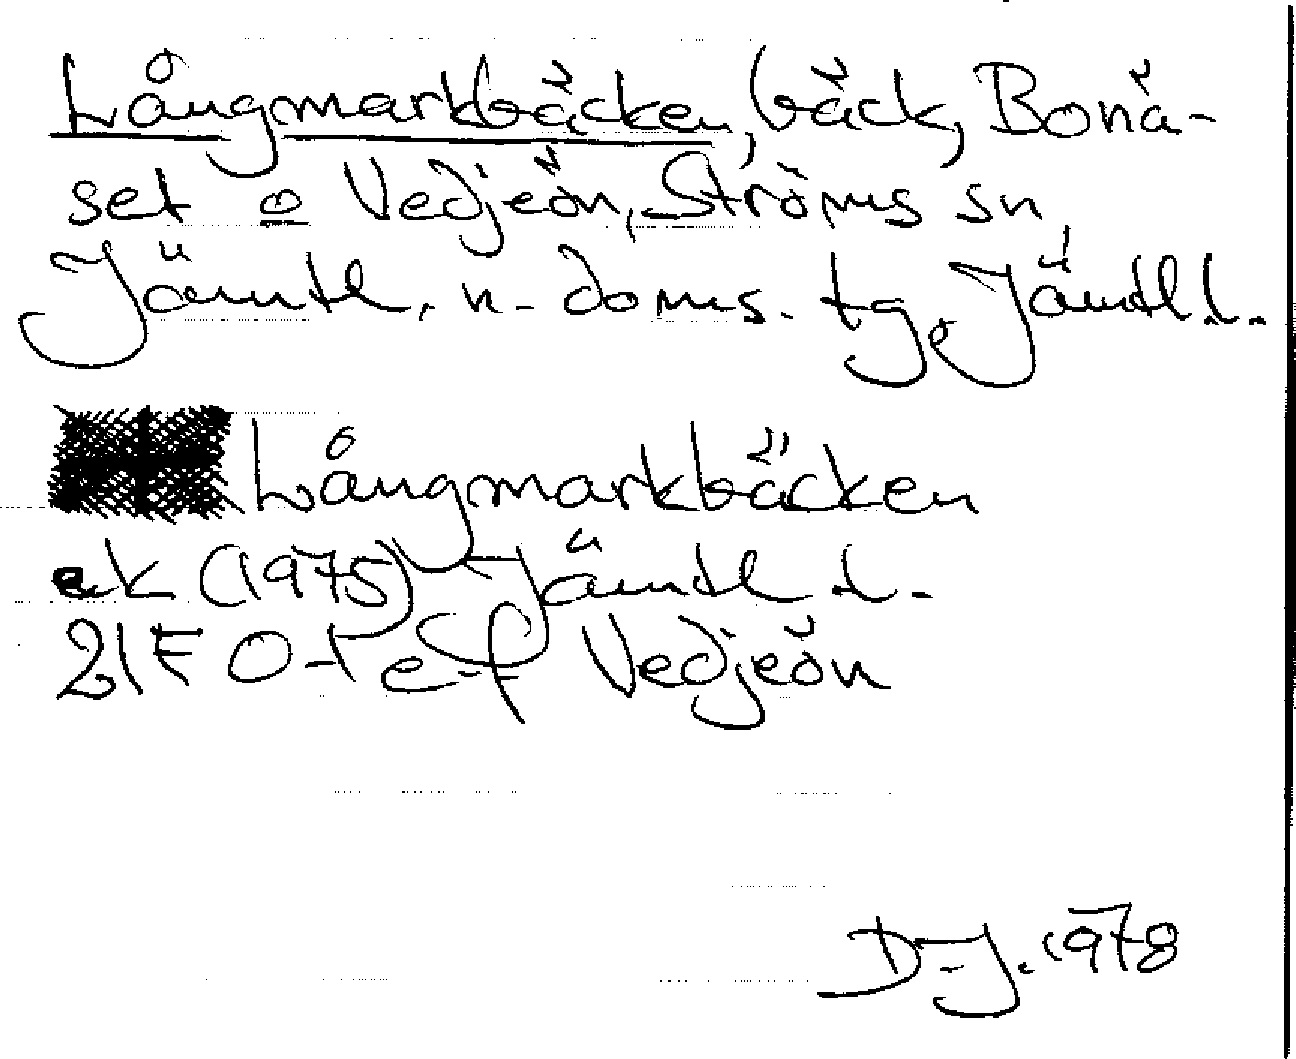 Långmarkbäcken, bäck, Bonä-
set o Vedjeön, Ströms sn
Jämtl. n. doms. tg, Jämtl l.
Långmarkbäcken
ek (1975) Jämtl l.
21F 0-1 e-f Vedjeön
D-J. 1978